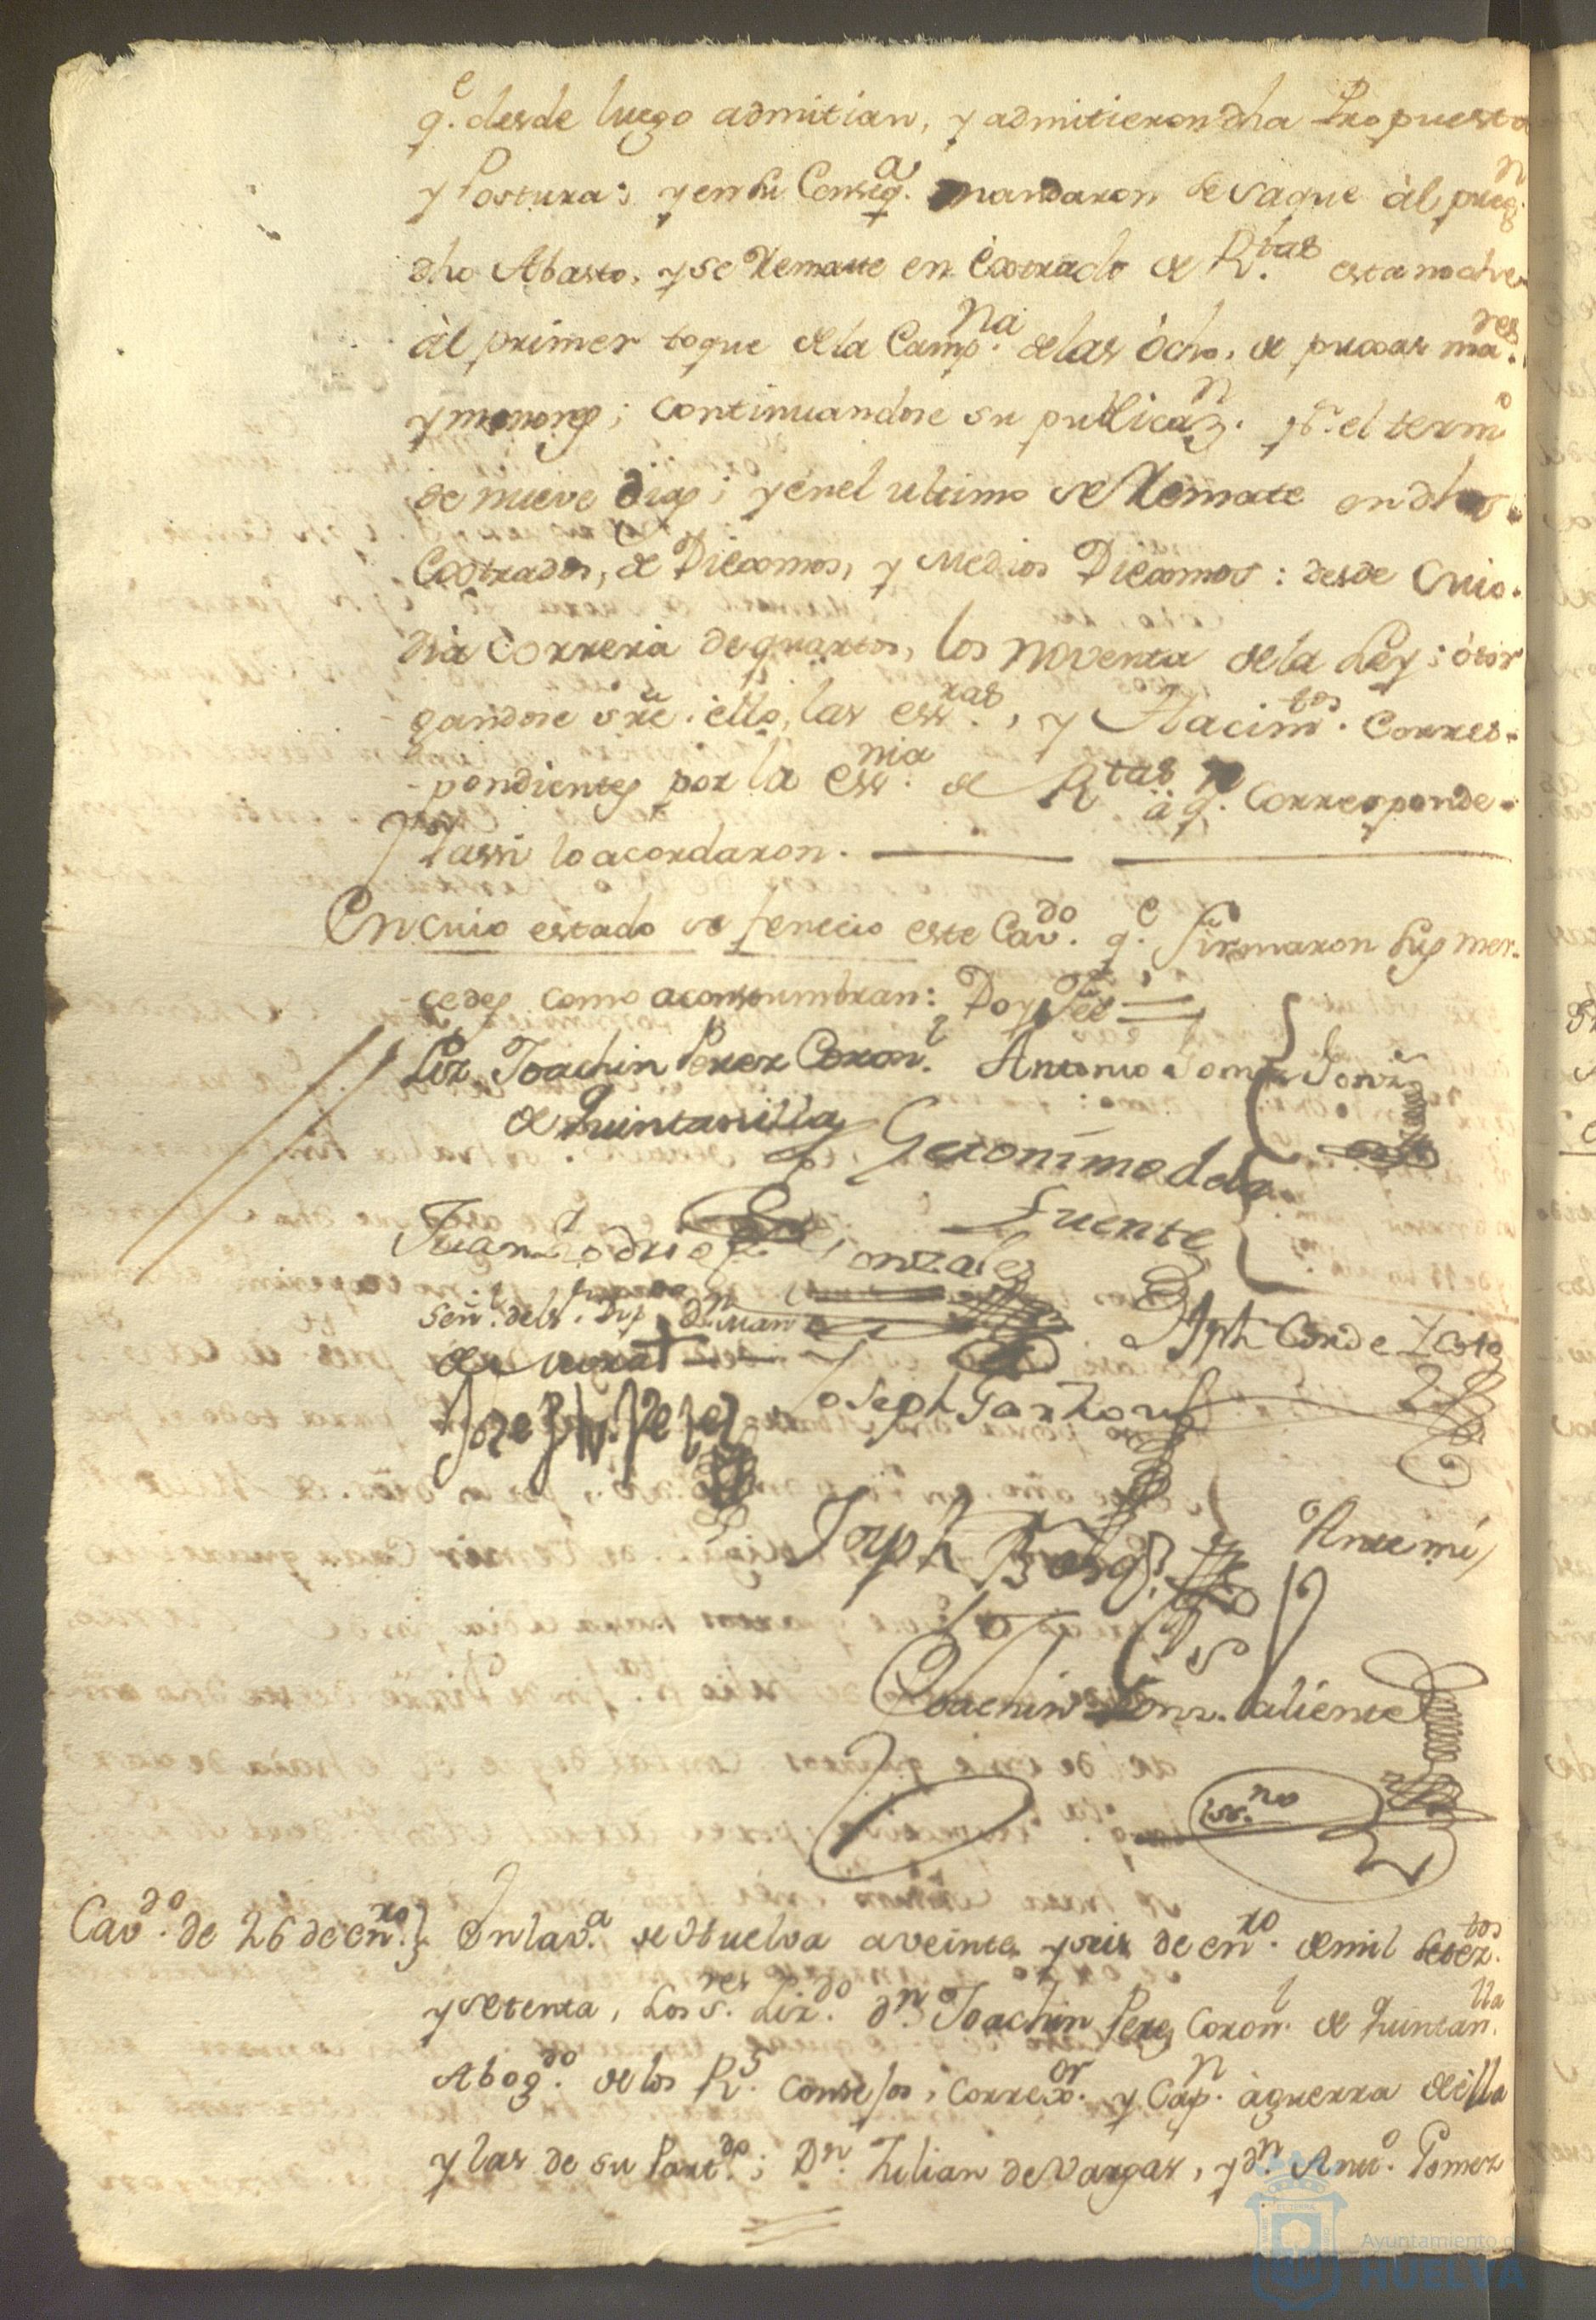 q.e desde luego admitian, y admitieron dha Propuesta
y Postura: y en su Conseq.a mandaron se saque àl preg.n
dho Abasto, y se Remate en Extrado de R.tas esta noche
àl primer toque de la Camp.na de las òcho, de puxas ma.res
y menores; continuandose su publicaz.n p.r el term.o
de nueve dias; y en el ultimo se Remate en dhos
Extrados, de Diezmos, y Medios Diezmos: desde cuio
dia correria de quartos, los noventa de la Ley; òtor
gandose sre. ello, las ess.ras, y Hacim.tos corres-
-pondientes por la ess.nia de R.tas à q.n corresponde-
Y assi lo acordaron.
En cuio estado se fenecio este Cav.do q.e firmaron sus mer-
-cedes como acostumbran: Doy Fee=
Liz. Joachin Perez Coron.l
de Quintanilla
Antonio Gomez Gonz.
Geronimo de la
Fuente
Juan Rodrig Gonzales
Señ.l del s.r Dip.do D.n Man
de Mora †
Jph Conde Zorto
Joseph Garzon
Joseph. Perez
Joseph
Ante mi,
Joachin Gonz. Valiente
ess.no
Cav.do de 26 de en.ro} En la v.a de Huelva a veinte y seis de en.ro de mil setez.tos
y setenta, Los s.res Liz.do D.n Joachin Perez Coron.l de Quintan.lla
Abog.do de los R.s Consejos, Correx.or y Cap.n àguerra de èlla
y las de su Part.do; D.n Julian de Vargas, y d.n Ant.o Gomez
Ayuntamiento de
HUELVA